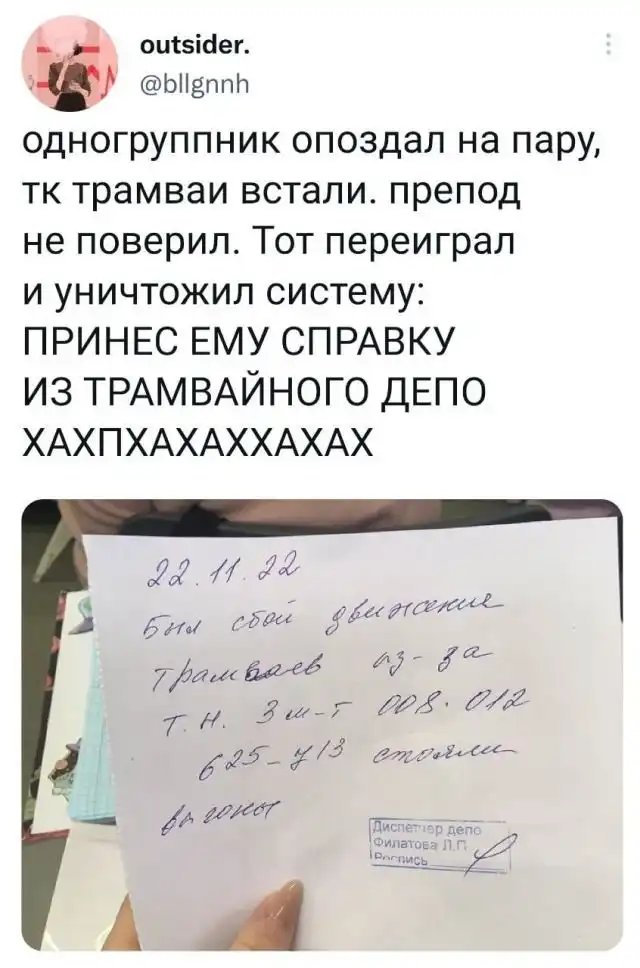 outsider.
@bllgnnh
одногруппник опоздал на пару,
тк трамваи встали. препод
не поверил. Тот переиграл
и уничтожил систему:
ПРИНЕС ЕМУ СПРАВКУ
ИЗ ТРАМВАЙНОГО ДЕПО
ХАХПХАХАХХАХАХ
22.11.22
Был сбой движения
трамваев из-за
т.н. 3 м-т 008.012
625-713 стояли
вагоны
Диспетчер депо
Филатова Л.П
Роспись